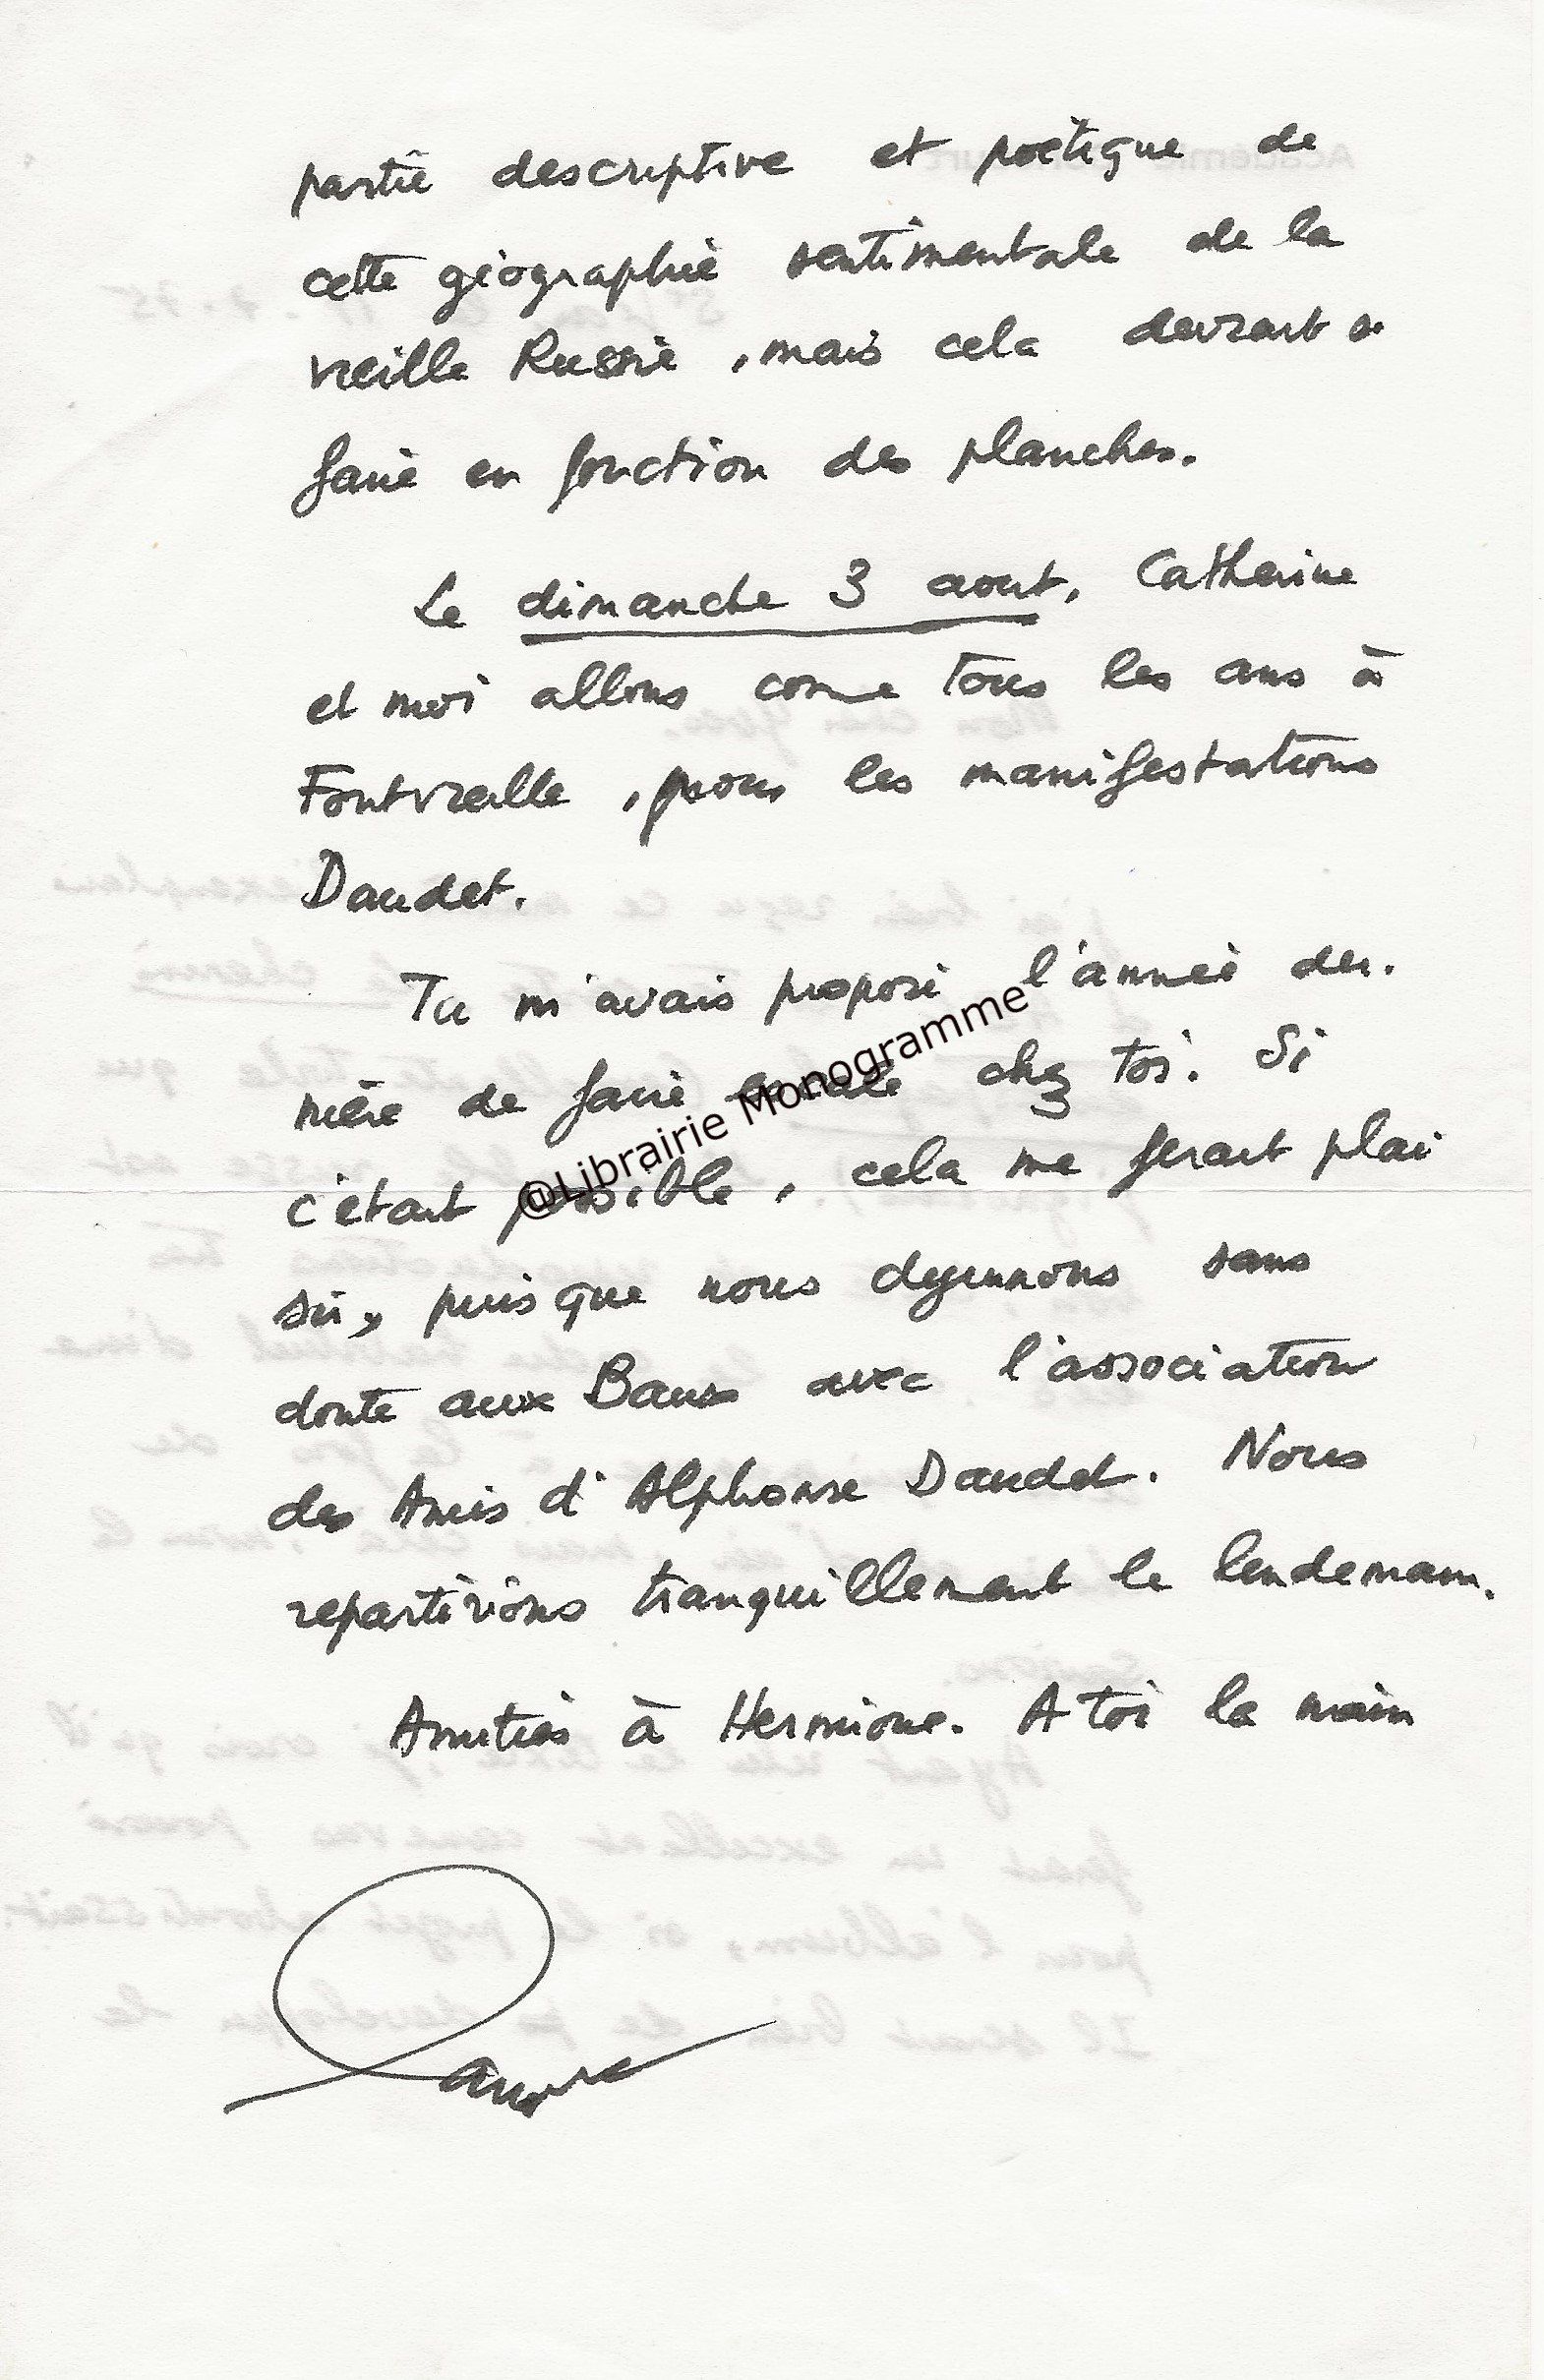 partie descriptive et poétique de
cette géographie sentimentale de la
vieille Russie, mais cela devrait se
faire en fonction des planches.
Le dimanche 3 aout, Catherine
et moi allons comme tous les ans à
Fontvieille, pour les manifestations
Daudet.
Tu m'avais proposé l'année der.
nière de faire escale chez toi. Si
c'était possible, cela me ferait plai
sir, puisque nous dejeunons sans
doute aux Baux avec l'association
des Amis d'Alphonse Daudet. Nous
repartirions tranquillement le lendemain.
Amitiés à Hermione. A toi la main
@Librairie Monogramme